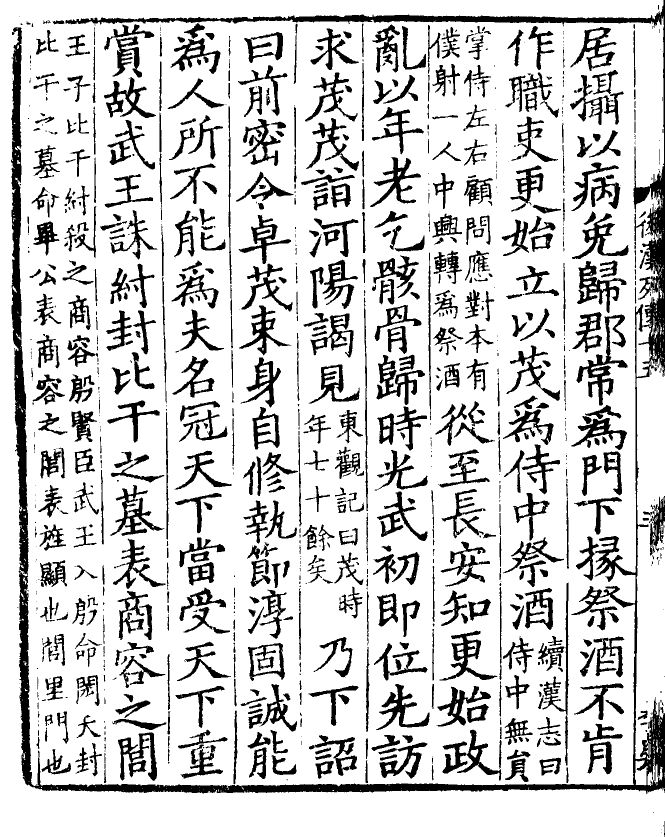 居攝以病免歸郡常爲門下掾祭酒不肯
作職吏更始立以茂爲侍中祭酒續漢志曰侍中無員
掌侍左右顧問應對本有僕射一人中興轉爲祭酒從至長安知更始政
亂以年老乞骸骨歸時光武初即位先訪
求茂茂詣河陽謁見東觀記曰茂時年七十餘矣乃下詔
曰前密令卓茂束身自修執節淳固誠能
爲人所不能爲夫名冠天下當受天下重
賞故武王誅紂封比干之墓表商容之閭
王子比干紂殺之商容殷賢臣武王入殷命閎夭封比干之墓命畢公表商容之閭表旌顯也閭里門也